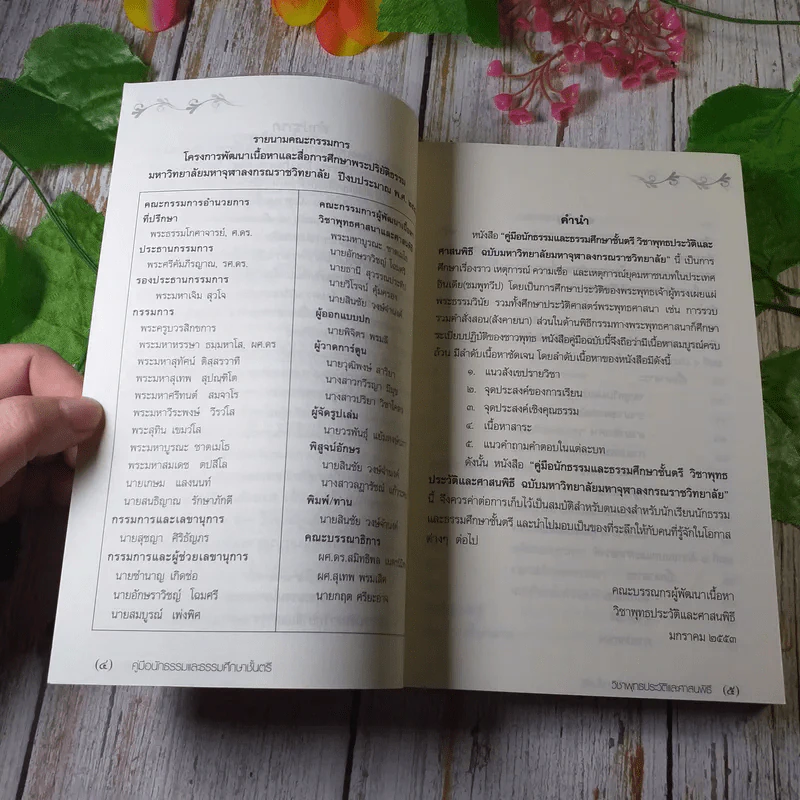 รายนามคณะกรรมการ
โครงการพัฒนาเนื้อหาและสื่อการศึกษาพระปริยัติธรรม
มหาวิทยาลัยมหาจุฬาลงกรณราชวิทยาลัย ปีงบประมาณ พ.ศ.
คณะกรรมการอำนวยการ
ที่ปรึกษา
พระธรรมโกศาจารย์, ศ.ดร.
ประธานกรรมการ
พระศรีคัมภีรญาณ, รศ.ดร.
รองประธานกรรมการ
พระมหาเจิม สุวโจ
กรรมการ
พระครูบวรสิกขการ
พระมหาหรรษา ธมฺมหาโส, ผศ.ดร
พระมหาสุทัศน์ ติสฺสรวาที
พระมหาสุเทพ สุปณฺฑิโต
พระมหาศรีทนต์ สมจาโร
พระมหาวีระพงษ์ วีรวํโส
พระสุทิน เขมวํโส
พระมหาบูรณะ ชาตเมโธ
พระมหาสมเดช ตปสีโล
นายเกษม แสงนนท์
นายสนธิญาณ รักษาภักดี
กรรมการและเลขานุการ
นายสุชญา ศิริธัญภร
กรรมการและผู้ช่วยเลขานุการ
นายชำนาญ เกิดช่อ
นายอักษราวิชญ์ โฉมศรี
นายสมบูรณ์ เพ่งพิศ
คณะกรรมการผู้พัฒนาเนื้อหา
วิชาพุทธศาสนาและศาสนพิธี
พระมหาบูรณะ ชาตเมโธ
นายอักษราวิชญ์ โฉมศรี
นายธานี สุวรรณประทีป
นายวิโรจน์ คุ้มครอง
นายสินชัย วงษ์จำนงค์
ผู้ออกแบบปก
นายพิจิตร พรมลี
ผู้วาดการ์ตูน
นายวุฒิพงษ์ ลาริยา
นางสาวกวีรญา
นางสาวปริยา
ผู้จัดรูปเล่ม
นายวรพันธุ์
พิสูจน์อักษร
นายสินชัย วงษ์จำนงค์
นางสาวลฎารัชณ์
พิมพ์/ทาน
นายสินชัย วงษ์จำนงค์
คณะบรรณาธิการ
ผศ.ดร.สมิทธิพล
ผศ.สุเทพ พรมเลิศ
นายกฤต ศรียะอาจ
(๔) คู่มือนักธรรมและธรรมศึกษาชั้นตรี
คำนำ
หนังสือ “คู่มือนักธรรมและธรรมศึกษาชั้นตรี วิชาพุทธประวัติและ
ศาสนพิธี ฉบับมหาวิทยาลัยมหาจุฬาลงกรณราชวิทยาลัย” นี้ เป็นการ
ศึกษาเรื่องราว เหตุการณ์ ความเชื่อ และเหตุการณ์ยุคมหาชนบทในประเทศ
อินเดีย(ชมพูทวีป) โดยเป็นการศึกษาประวัติของพระพุทธเจ้าผู้ทรงเผยแผ่
พระธรรมวินัย รวมทั้งศึกษาประวัติศาสตร์พระพุทธศาสนา เช่น การรวบ
รวมคำสั่งสอน(สังคายนา) ส่วนในด้านพิธีกรรมทางพระพุทธศาสนาก็ศึกษา
ระเบียบปฏิบัติของชาวพุทธ หนังสือคู่มือฉบับนี้จึงถือว่ามีเนื้อหาสมบูรณ์ครบ
ถ้วน มีลำดับเนื้อหาชัดเจน โดยลำดับเนื้อหาของหนังสือมีดังนี้
๑. แนวสังเขปรายวิชา
๒. จุดประสงค์ของการเรียน
๓. จุดประสงค์เชิงคุณธรรม
๔. เนื้อหาสาระ
๕. แนวคำถามคำตอบในแต่ละบท
ดังนั้น หนังสือ “คู่มือนักธรรมและธรรมศึกษาชั้นตรี วิชาพุทธ
ประวัติและศาสนพิธี ฉบับมหาวิทยาลัยมหาจุฬาลงกรณราชวิทยาลัย”
นี้ จึงควรค่าต่อการเก็บไว้เป็นสมบัติสำหรับตนเองสำหรับนักเรียนนักธรรม
และธรรมศึกษาชั้นตรี และนำไปมอบเป็นของที่ระลึกให้กับคนที่รู้จักในโอกาส
ต่างๆ ต่อไป
คณะบรรณกรผู้พัฒนาเนื้อหา
วิชาพุทธประวัติและศาสนพิธี
มกราคม ๒๕๕๓
วิชาพุทธประวัติและศาสนพิธี (๕)